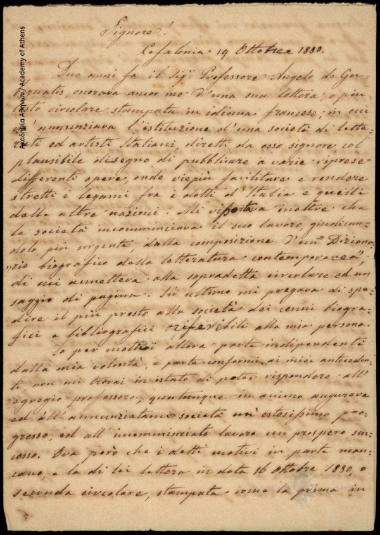 Signore!
Cefalonia 19 Ottobre 1880.
Due anni fa il Sigr Professore Angelo de Gu-
bernatis onorava anco me d'una sua lettera, e più
circolare stampata in idioma francese, in cui
s'annunziava l'istituzione d'una società di lette-
rati ed artisti Italiani, diretti da esso signore col
plausibile disegno di pubblicare a varie riprese
differenti opere, onde viepiù facilitare e rendere
stretti i legami fra i dotti d'Italia e quelli
delle altre nazioni. Mi inoltre che
la società incominciava il suo lavoro, giudican-
dolo più urgente, dalla composizione d'un Diziona-
rio biografico della letteratura contemporanea,
di cui annetteva alla sopradetta circolare ed un
saggio di pagina. In ultimo mi pregava di spe-
dire il più presto alla società dei cenni biogra-
fici e bibliografici referibili alla mia persona.
Io per motivi allora parte indipendenti
dalla mia volontà, e parte conformi ai miei anteceden-
ti non mi trovai in istato di poter rispondere all'
egregio professore, quantunque in animo augurava
ed all'annunziata società un'estesissimo pro-
gresso, ed all'incominciato lavoro un prospero suc-
cesso. Ora però che i detti motivi in parte man-
cano, e la di lei lettera in data 16 Ottobre 1880, e
seconda circolare, stampata come la prima in
Ακαδημία Αθηνών / Academy of Athens